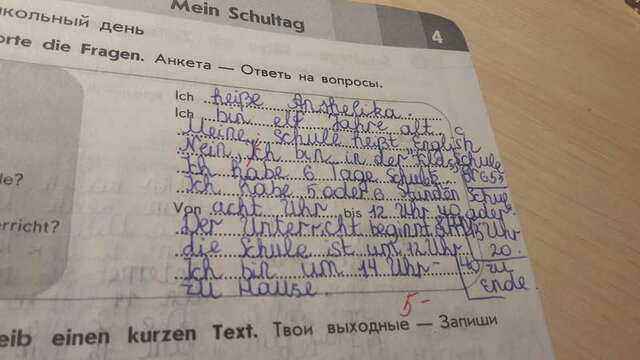 Mein Schultag
кольный день
4
orte die Fragen. Анкета — Ответь на вопросы.
Ich heiße Anshelika.
Ich bin elf Jahre alt.
Meine Schule heißt English
Nein, Ich bin in der Schule
Ich habe 6 Tage Schule
№ 655
le?
Ich habe 5 oder 6 Stunden
Von acht Uhr bis 12 Uhr 40 oder
erricht?
Der Unterricht beginnt Uhr
die Schule ist um 12 Uhr 20
Ich bin um 14 Uhr 40 zu
zu Hause. Ende
5-
eib einen kurzen Text. Твои выходные — Запиши